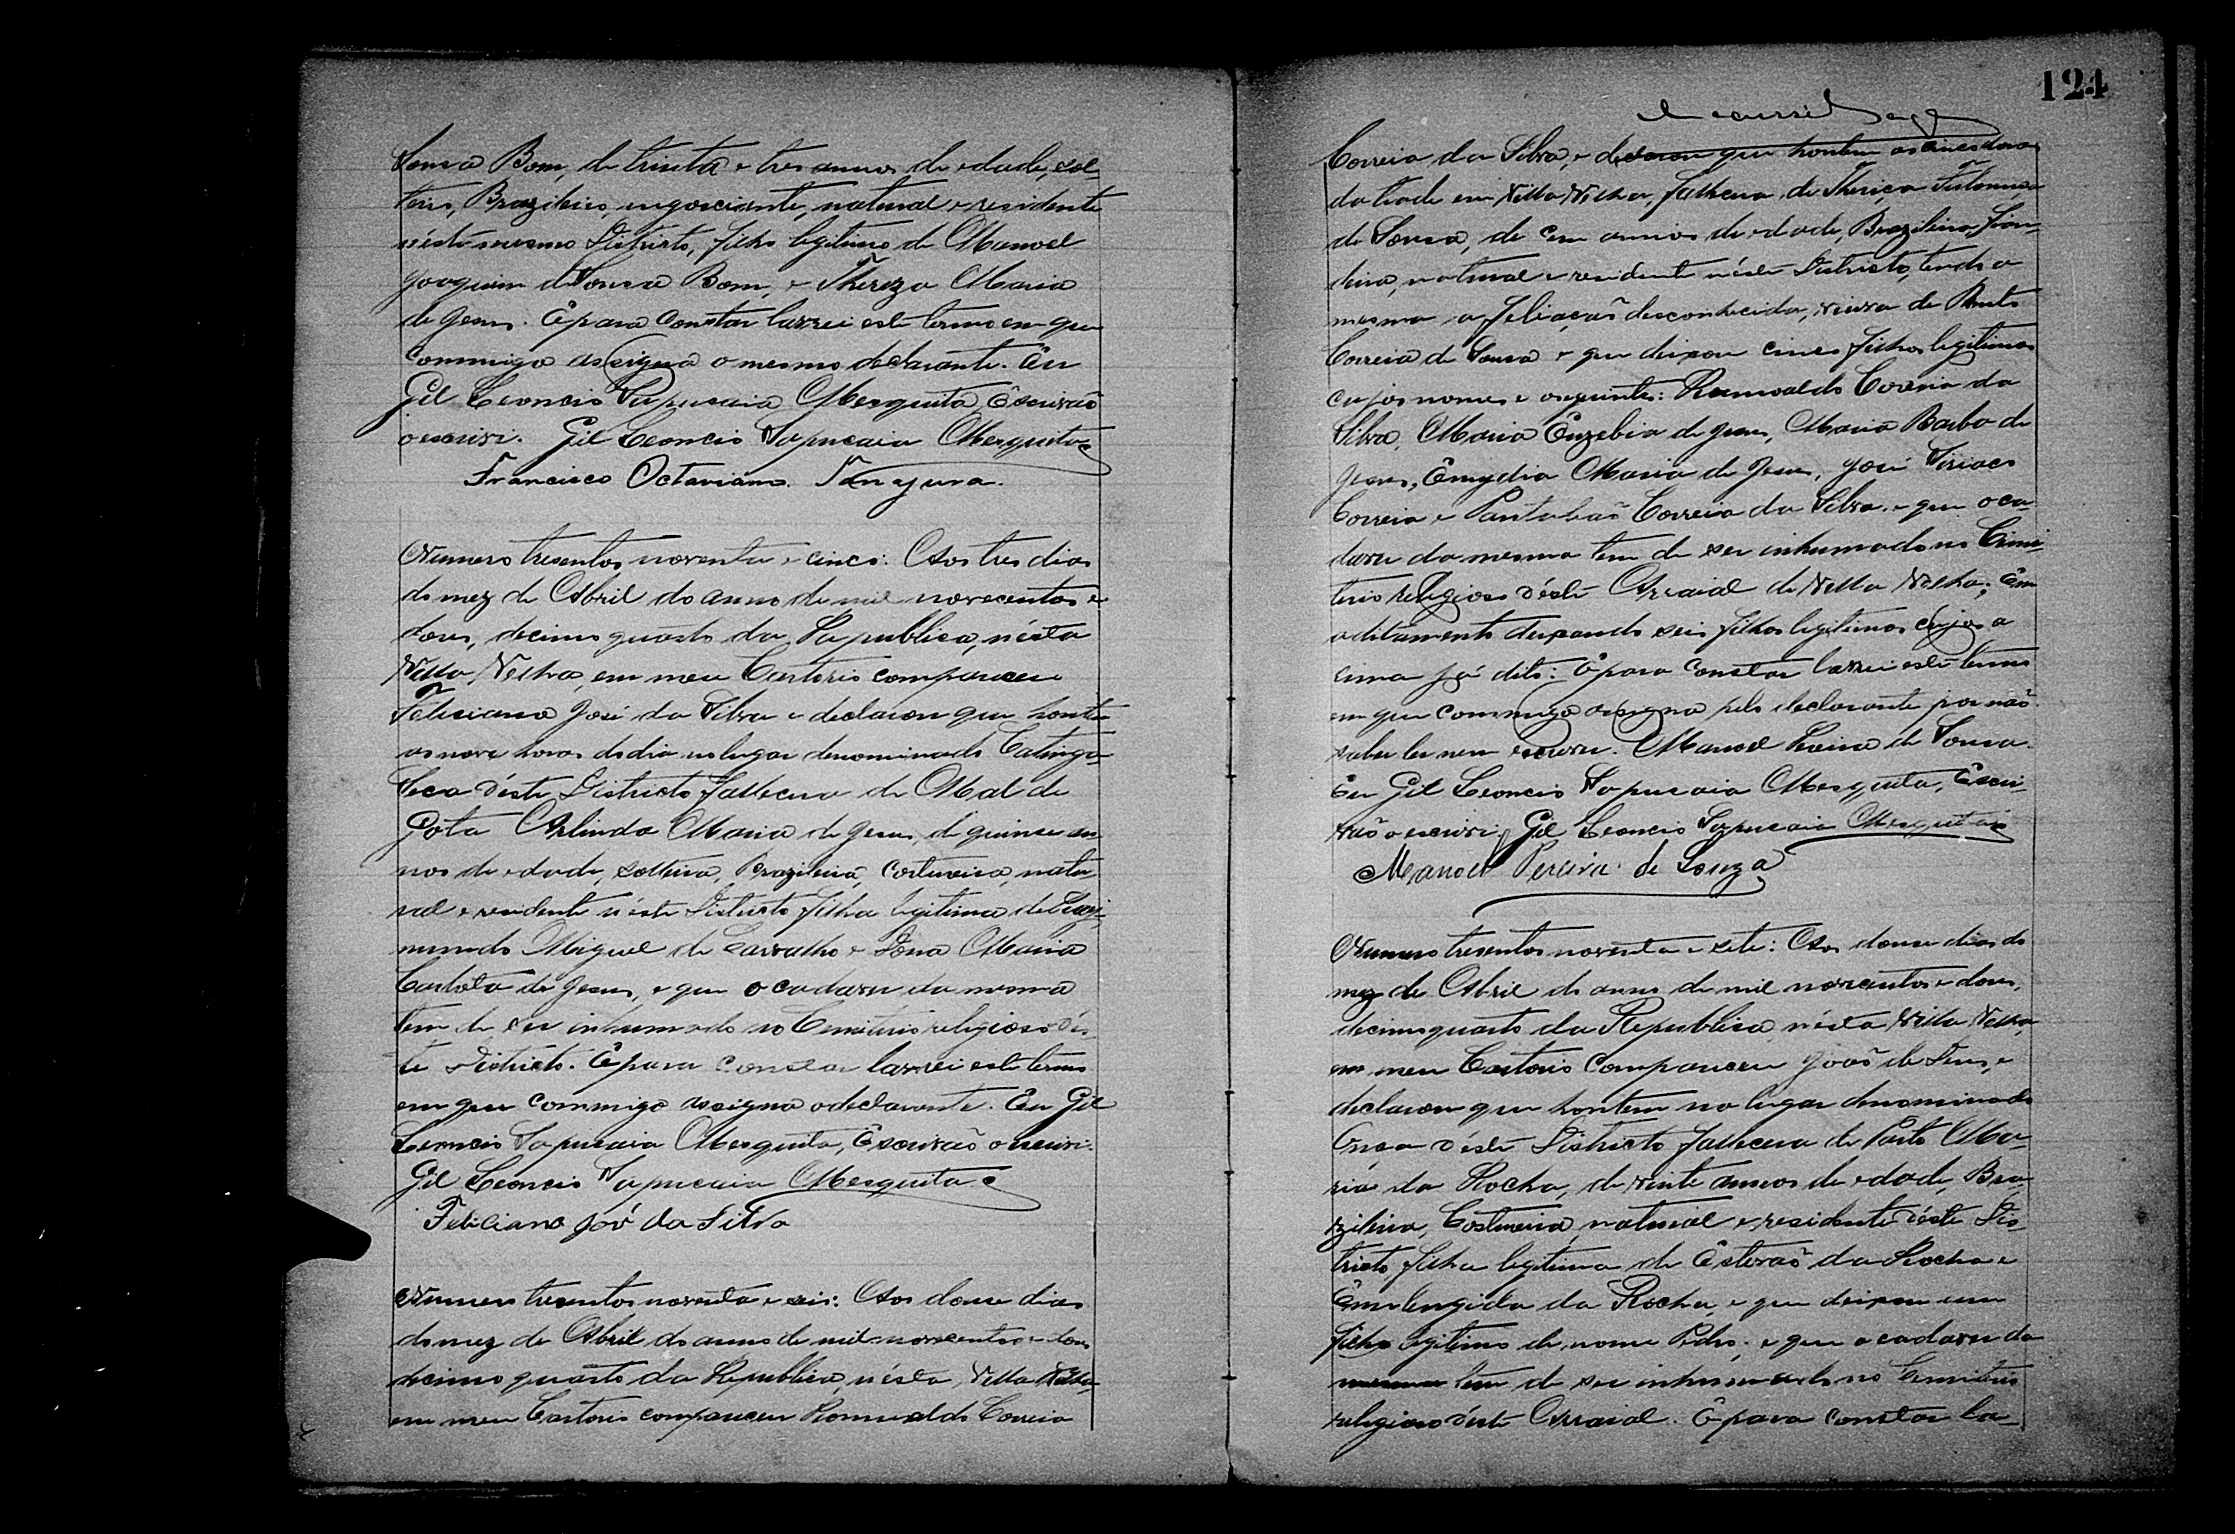 Sousa Bom, de trinta e tres annos de edade, sol-
teiro, Brazileiro, negociante, natural e residente
néste mesmo Districto, filho legitimo de Manoel
Joaquim de Sousa Bom, e Thereza Maria
de Jesus. E para constar lavrei este termo em que
commigo assigna o mesmo declarante. Eu
Gil Leoncio Sapucaia Mesquita, Escrivão
o escrivi. Gil Leoncio Sapucaia Mesquita
Francisco Octaviano Tanajura.
Numero tresentos noventa e cinco: Aos tres dias
do mez de Abril do anno de mil novecentos e
dous, decimo quarto da Republica, nésta
Villa Velha, em meu Cartorio compareceu
Feliciano José da Silva e declarou que hontem
as nove horas do dia no lugar denominado Catinga
Seca déste Districto falleceu de Mal de
Gota Arlinda Maria de Jesus, de quinse an-
nos de edade, solteira, Brazileira, Costureira, natu-
ral e residente néste Districto filha legitima de
Miguel de Carvalho e Dona Maria
Carlota de Jesus, e que o cadaver da mesma
tem de ser inhumado no Cemiterio religioso dés-
te Districto. E para constar lavrei este termo
em que commigo assigna o declarante. Eu Gil
Leoncio Sapucaia Mesquita, Escrivão o escrivi.
Gil Leoncio Sapucaia Mesquita
Feliciano José da Silva
Numero tresentos noventa e seis: Aos douse dias
do mez de Abril do anno de mil novecentos e dous
decimo quarto da Republica, nésta Villa Velha,
em meu Cartorio compareceu Romualdo Correia
124
Correia da Silva, e declarou que hontem as cinco horas
da tarde em Villa Velha, falleceu de
de Sousa, de cem annos de edade, Brazileira, fian-
deira, natural e residente néste Districto, tendo a
mesma a filiação desconhecida, viuva de Bento
Correia de Sousa e que deixou cinco filhos legitimos
cujos nomes e o seguinte: Romualdo Correia da
Silva, Maria Euzebia de Jesus, Maria Barba de
Jesus, Emydia Maria de Jesus, José Siriaco
Correia e Pantaleão Correia da Silva, e que o ca-
daver da mesma tem de ser inhumado no Cimi-
terio religioso déste Arraial de Villa Velha; Em
aditamento deixando seis filhos legitimos cujos a
cima já dito: E para constar lavrei este termo
em que commigo assigna pelo declarante por não
saber ler nem escrever. Manoel Pereira de Sousa.
Eu Gil Leoncio Sapucaia Mesquita, Escri-
vão o escrivi. Gil Leoncio Sapucaia Mesquita
Manoel Pereira de Souza
Numero tresentos noventa e sete: Aos douse dias do
mez de Abril do anno de mil novecentos e dous,
decimo quarto da Republica, nésta Villa Velha,
em meu Cartorio compareceu João de Deus, e
declarou que hontem no lugar denominado
Onça déste Districto falleceu de Parto Ma-
ria da Rocha, de vinte annos de edade, Bra-
zileira, Costureira, natural e residente déste Dis-
tricto filha legitima de Estevão da Rocha e
da Rocha, e que deixou um
filho legitimo de nome Pedro; e que o cadaver da
mesma tem de ser inhumado no Cemiterio
religioso déste Arraial. E para constar la-